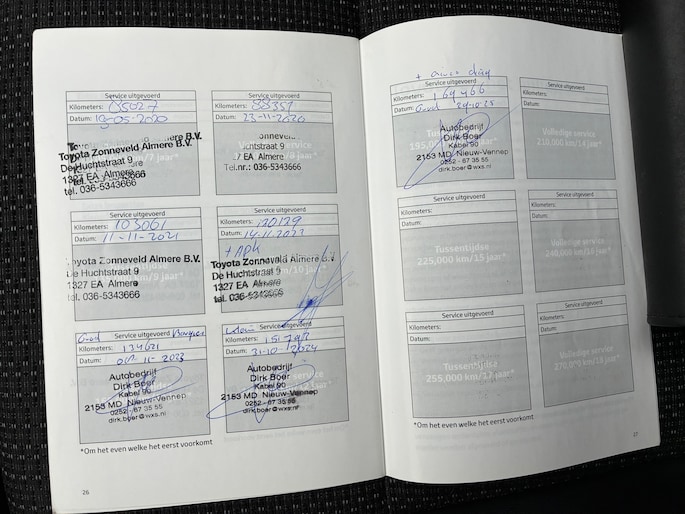 Service uitgevoerd
Kilometers: 85027
Datum: 19-05-2020
Toyota Zonneveld Almere B.V.
De Huchtstraat 9
1327 EA Almere
tel. 036-5343666
Service uitgevoerd
Kilometers: 88351
Datum: 23-11-2020
Huchtstraat 9
EA Almere
Tel.nr.: 036-5343666
Service uitgevoerd
Kilometers: 103061
Datum: 11-11-2021
Toyota Zonneveld Almere B.V.
De Huchtstraat 9
1327 EA Almere
tel. 036-5343666
Service uitgevoerd
Kilometers: 120129
Datum: 14-11-2022
+ APK
Toyota Zonneveld Almere B.V.
De Huchtstraat 9
1327 EA Almere
tel. 036-5343666
Service uitgevoerd
Kilometers: 134621
Datum: 11-2023
Autobedrijf
Dirk Boer
Kabel 90
2153 MD Nieuw-Vennep
0252 - 67 35 55
dirk.boer@wxs.nl
Service uitgevoerd
Kilometers:
Datum: 31-10-2024
Autobedrijf
Dirk Boer
Kabel 90
2153 MD Nieuw-Vennep
0252 - 67 35 55
dirk.boer@wxs.nl
*Om het even welke het eerst voorkomt
26
Service uitgevoerd
Kilometers: 164466
Datum: 29-10-25
Autobedrijf
Dirk Boer
Kabel 90
2153 MD Nieuw-Vennep
0252 - 67 35 55
dirk.boer@wxs.nl
Service uitgevoerd
Kilometers:
Datum:
Volledige service
210,000 km/14 jaar*
Service uitgevoerd
Kilometers:
Datum:
Tussentijdse
225,000 km/15 jaar*
Service uitgevoerd
Kilometers:
Datum:
Volledige service
240,000 km/16 jaar*
Service uitgevoerd
Kilometers:
Datum:
Tussentijdse
255,000 km/17 jaar*
Service uitgevoerd
Kilometers:
Datum:
Volledige service
270,000 km/18 jaar*
*Om het even welke het eerst voorkomt
27